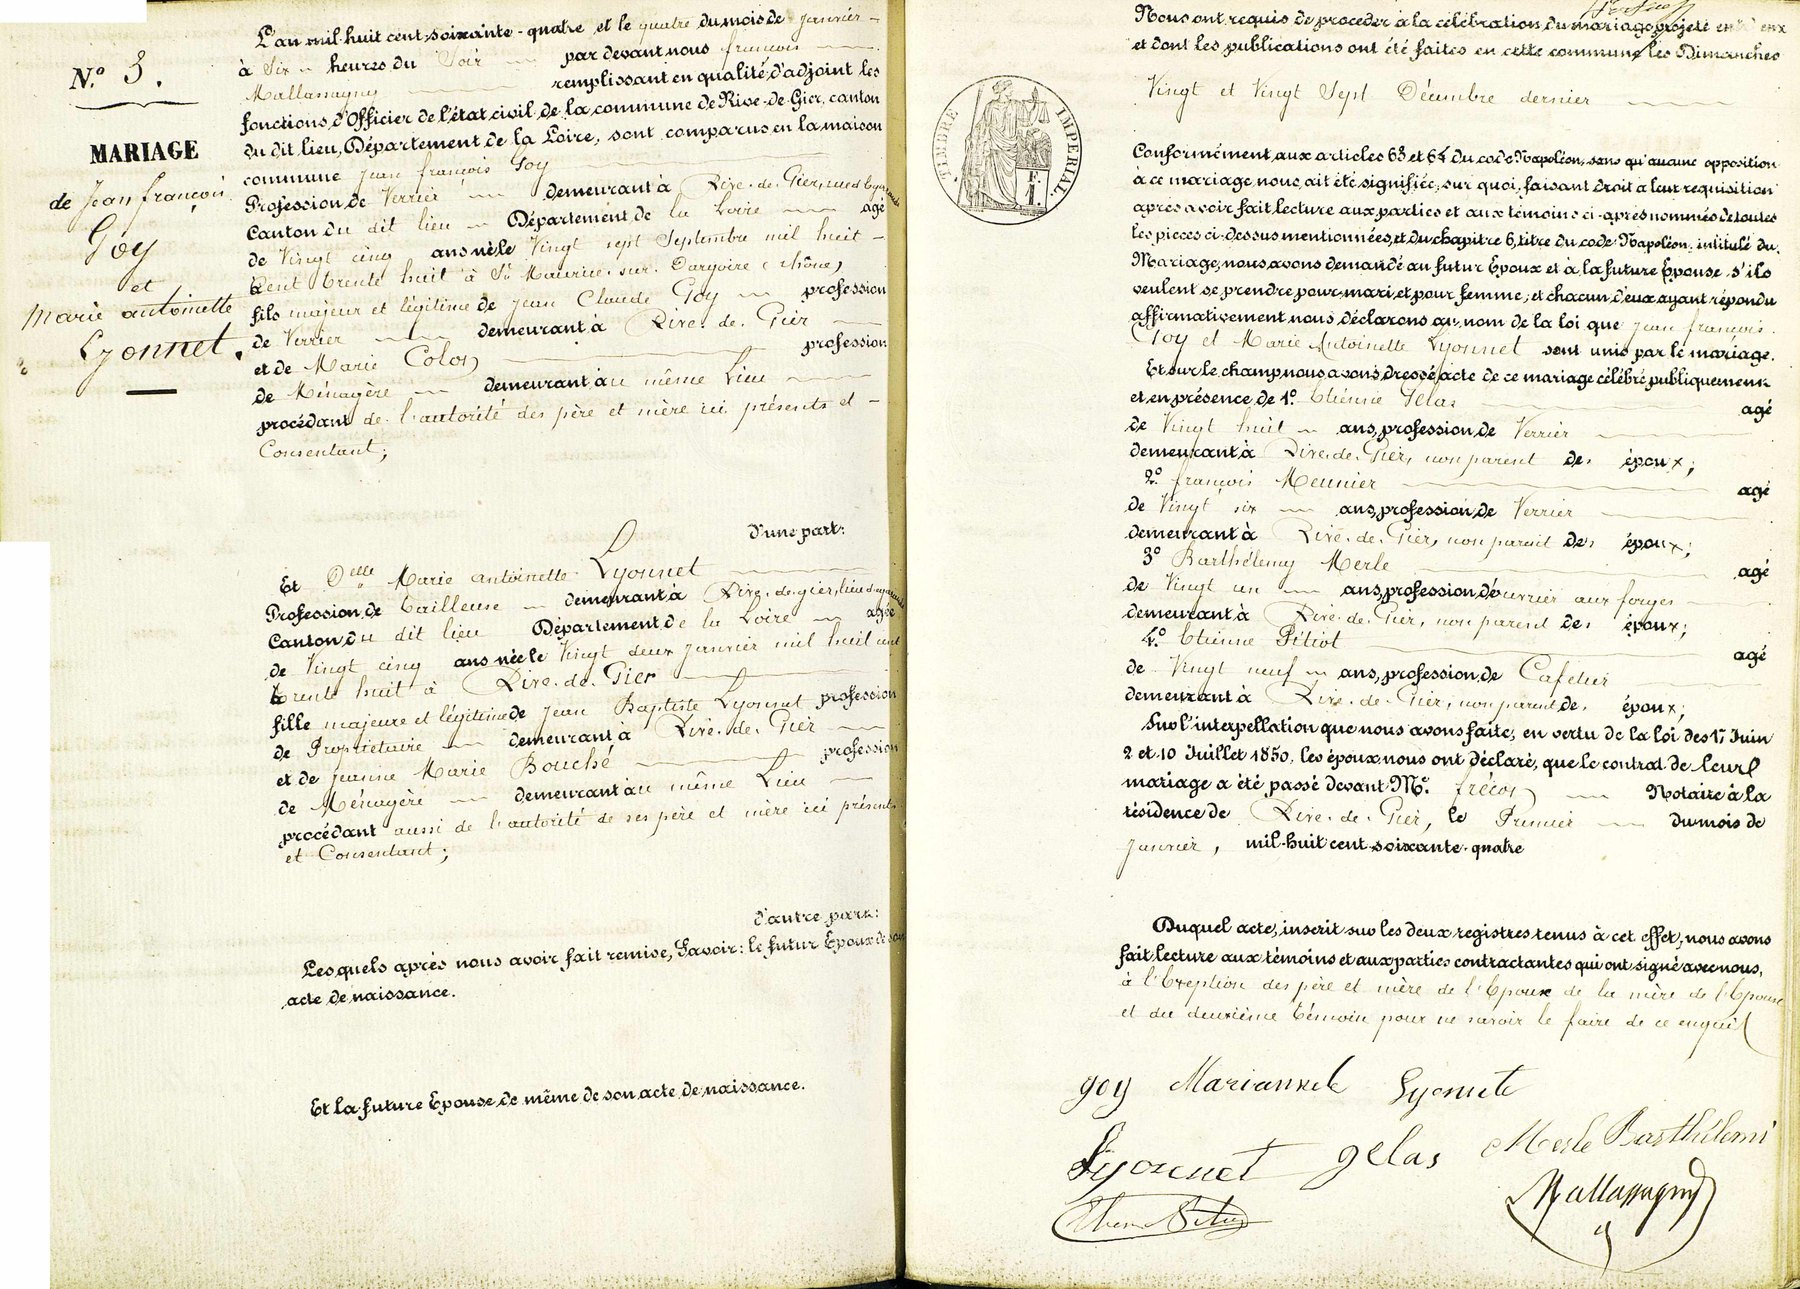 N.º 3.
MARIAGE
de Jean françois
Goy
et
Marie antoinette
Lyonnet.
L'an mil-huit cent-soixante-quatre et le quatre du mois de Janvier
à Six heures du Soir par devant nous françois
Mallassagny remplissant en qualité d'adjoint les
fonctions d'Officier de l'état civil de la commune de Rive-de-Gier, canton
du dit lieu, Département de la Loire, sont comparus en la maison
commune Jean françois Goy
Profession de Verrier demeurant à Rive-de-Gier,
Canton du dit lieu Département de la Loire agé
de Vingt cinq ans né le Vingt sept Septembre mil huit
Cent trente huit à St Maurice-sur-Dargoire (rhône)
fils majeur et légitime de Jean Claude Goy profession
de Verrier demeurant à Rive-de-Gier
et de Marie Colon profession
de Ménagère demeurant au même Lieu
procédant de l'autorité des père et mère ici présents et
Consentant;
d'une part:
Et Delle Marie antoinette Lyonnet
Profession de tailleuse demeurant à Rive-de-gier,
Canton du dit lieu Département de la Loire agée
de Vingt cinq ans née le Vingt deux Janvier mil huit cent
trente huit à Rive-de-Gier
fille majeure et légitime de Jean Baptiste Lyonnet profession
de Propriétaire demeurant à Rive-de-Gier
et de Jeanne Marie Bouché profession
de Ménagère demeurant au même Lieu
procédant aussi de l'autorité de ses père et mère ici présents
et Consentant;
d'autre part:
Lesquels après nous avoir fait remise, Savoir: le futur Epoux de son
acte de naissance.
Et la future Epouse de même de son acte de naissance.
Nous ont requis de procéder à la célébration du mariage projeté entre eux
et dont les publications ont été faites en cette commune les Dimanches
Vingt et Vingt Sept Décembre dernier
TIMBRE IMPERIAL.
1 F.
Conformément aux articles 63 et 64 du code Napoléon, sans qu'aucune opposition
à ce mariage nous ait été signifiée, sur quoi, faisant droit à leur requisition
après avoir fait lecture aux parties et aux témoins ci-après nommés de toutes
les pièces ci-dessus mentionnées, et du chapitre 6, titre du code Napoléon, intitulé du
Mariage, nous avons demandé au futur Epoux et à la future Epouse s'ils
veulent se prendre pour mari et pour femme; et chacun d'eux ayant répondu
affirmativement nous déclarons au nom de la loi que Jean françois
Goy et Marie Antoinette Lyonnet sont unis par le mariage.
Et sur le champ nous avons dressé acte de ce mariage célébré publiquement
et en présence de 1º. Etienne Gelas agé
de Vingt huit ans, profession de Verrier
demeurant à Rive-de-Gier, non parent des époux;
2º. françois Meunier agé
de Vingt six ans, profession de Verrier
demeurant à Rive-de-Gier, non parent des époux;
3º Barthélemy Merle agé
de Vingt un ans, profession d'ouvrier aux forges
demeurant à Rive-de-Gier, non parent des époux;
4º. Etienne Pitiot agé
de Vingt neuf ans, profession de Cafetier
demeurant à Rive-de-Gier, non parent des époux;
Sur l'interpellation que nous avons faite, en vertu de la loi des 17 Juin
2 et 10 Juillet 1850, les époux nous ont déclaré, que le contrat de leur
mariage a été passé devant Me. frécon Notaire à la
résidence de Rive-de-Gier, le Premier du mois de
Janvier, mil-huit cent-soixante-quatre
Duquel acte, inscrit sur les deux registres tenus à cet effet, nous avons
fait lecture aux témoins et aux parties contractantes qui ont signé avec nous,
à l'Exception des père et mère de l'Epoux de la mère de l'Epouse
et du deuxième témoin pour ne savoir le faire de ce enquis
goy Lyonnete
Lyonnet gelas Merle Barthélemi
Mallassagny